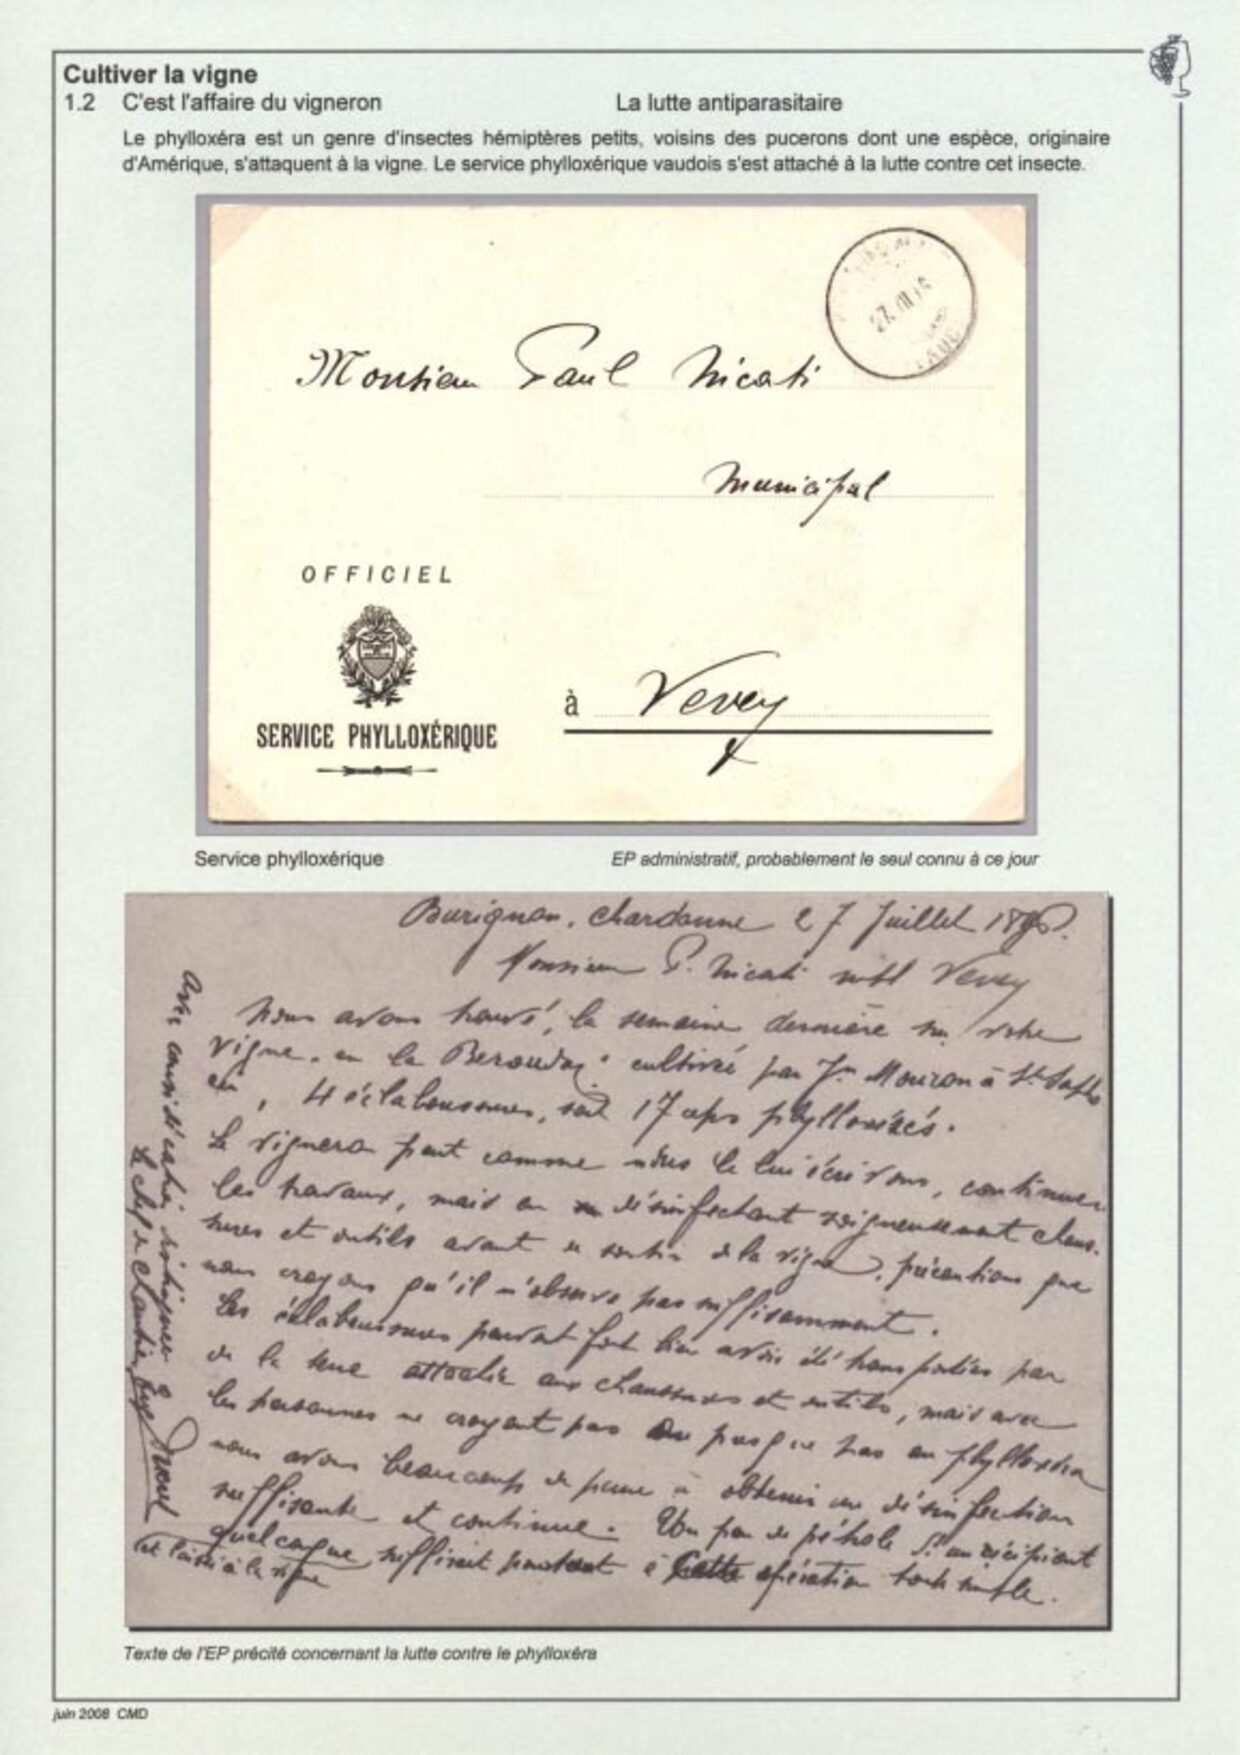 Cultiver la vigne
1.2 C'est l'affaire du vigneron La lutte antiparasitaire
Le phylloxéra est un genre d'insectes hémiptères petits, voisins des pucerons dont une espèce, originaire
d'Amérique, s'attaquent à la vigne. Le service phylloxérique vaudois s'est attaché à la lutte contre cet insecte.
27. VII
VAUD
Monsieur Paul Nicati
Municipal
OFFICIEL
à Vevey
SERVICE PHYLLOXÉRIQUE
Service phylloxérique EP administratif, probablement le seul connu à ce jour
Burignon, Chardonne 27 Juillet
Monsieur P. Nicati Vevey
Nous avons trouvé, la semaine dernière sur votre
vigne "en la cultivée par Mouron à St Sapho
rin, 4 éclaboussures, soit 17 ceps phylloxérés.
Le vigneron peut comme nous le lui écrivons, continuer
les travaux, mais en désinfectant soigneusement chaus-
sures et outils avant de sortir de la vigne, précautions que
nous croyons qu'il n'observe pas suffisamment.
Les éclaboussures peuvent fort bien avoir été transportées par
de la terre attachée aux chaussures et outils, mais avec
les personnes ne croyant pas ou presque pas au phylloxéra
nous avons beaucoup de peine à obtenir une désinfection
suffisante et continue. Un peu de pétrole ds un récipient
quelconque suffirait pourtant à cette opération toute simple.
laissé à la vigne
Avec considération distinguée
Le chef de chantier
Texte de l'EP précité concernant la lutte contre le phylloxéra
juin 2008 CMD